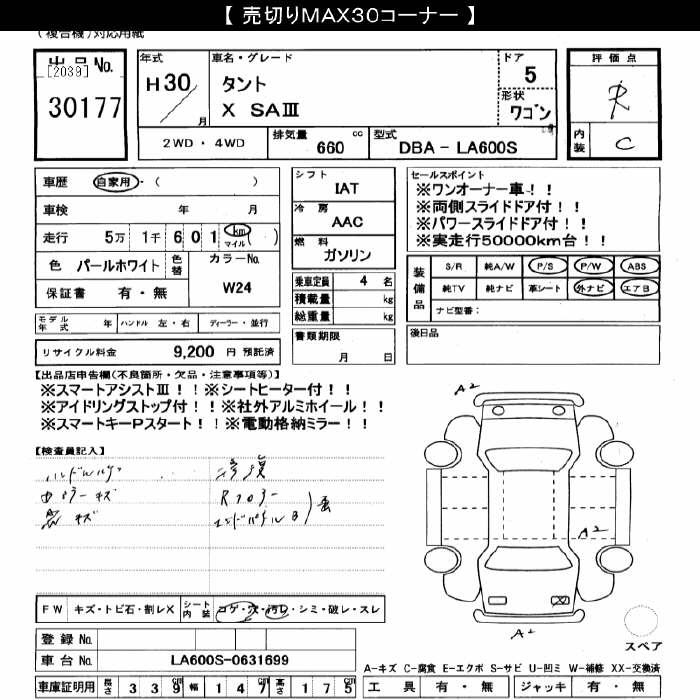 【 売切りMAX30コーナー 】
(複合機)対応用紙
出品No.
[2039]
30177
年式
H30
月
車名・グレード
タント
X SAⅢ
ドア
5
形状
ワゴン
2WD ・ 4WD
排気量
660
cc
型式
DBA - LA600S
評価点
R
内装
C
車歴 自家用・( )
車検 年 月
走行 5万 1千 6 0 1 km マイル ( )
色 パールホワイト 色替
カラーNo.
W24
保証書 有・無
シフト
IAT
冷房
AAC
燃料
ガソリン
乗車定員 4 名
積載量 kg
総重量 kg
書類期限
月 日
セールスポイント
※ワンオーナー車!!
※両側スライドドア付!!
※パワースライドドア付!!
※実走行50000km台!!
装備品
S/R 純A/W P/S P/W ABS
純TV 純ナビ 革シート 外ナビ エアB
ナビ型番:
後日品
モデル年式 年 ハンドル 左・右 ディーラー・並行
リサイクル料金 9,200 円 預託済
【出品店申告欄(不良箇所・欠品・注意事項等)】
※スマートアシストⅢ!!※シートヒーター付!!
※アイドリングストップ付!!※社外アルミホイール!!
※スマートキーPスタート!!※電動格納ミラー!!
【検査員記入】
キズ
キズ
Rフロアー
エンドパネル
A2
A2
A2
スペア
FW キズ・トビ石・割レX
シート内装 コゲ・穴・汚レ・シミ・破レ・スレ
登録No.
車台No. LA600S-0631699
車庫証明用 長さ 3 3 9 cm 幅 1 4 7 cm 高さ 1 7 5 cm
A-キズ C-腐食 E-エクボ S-サビ U-凹ミ W-補修 XX-交換済
工具 有・無 ジャッキ 有・無